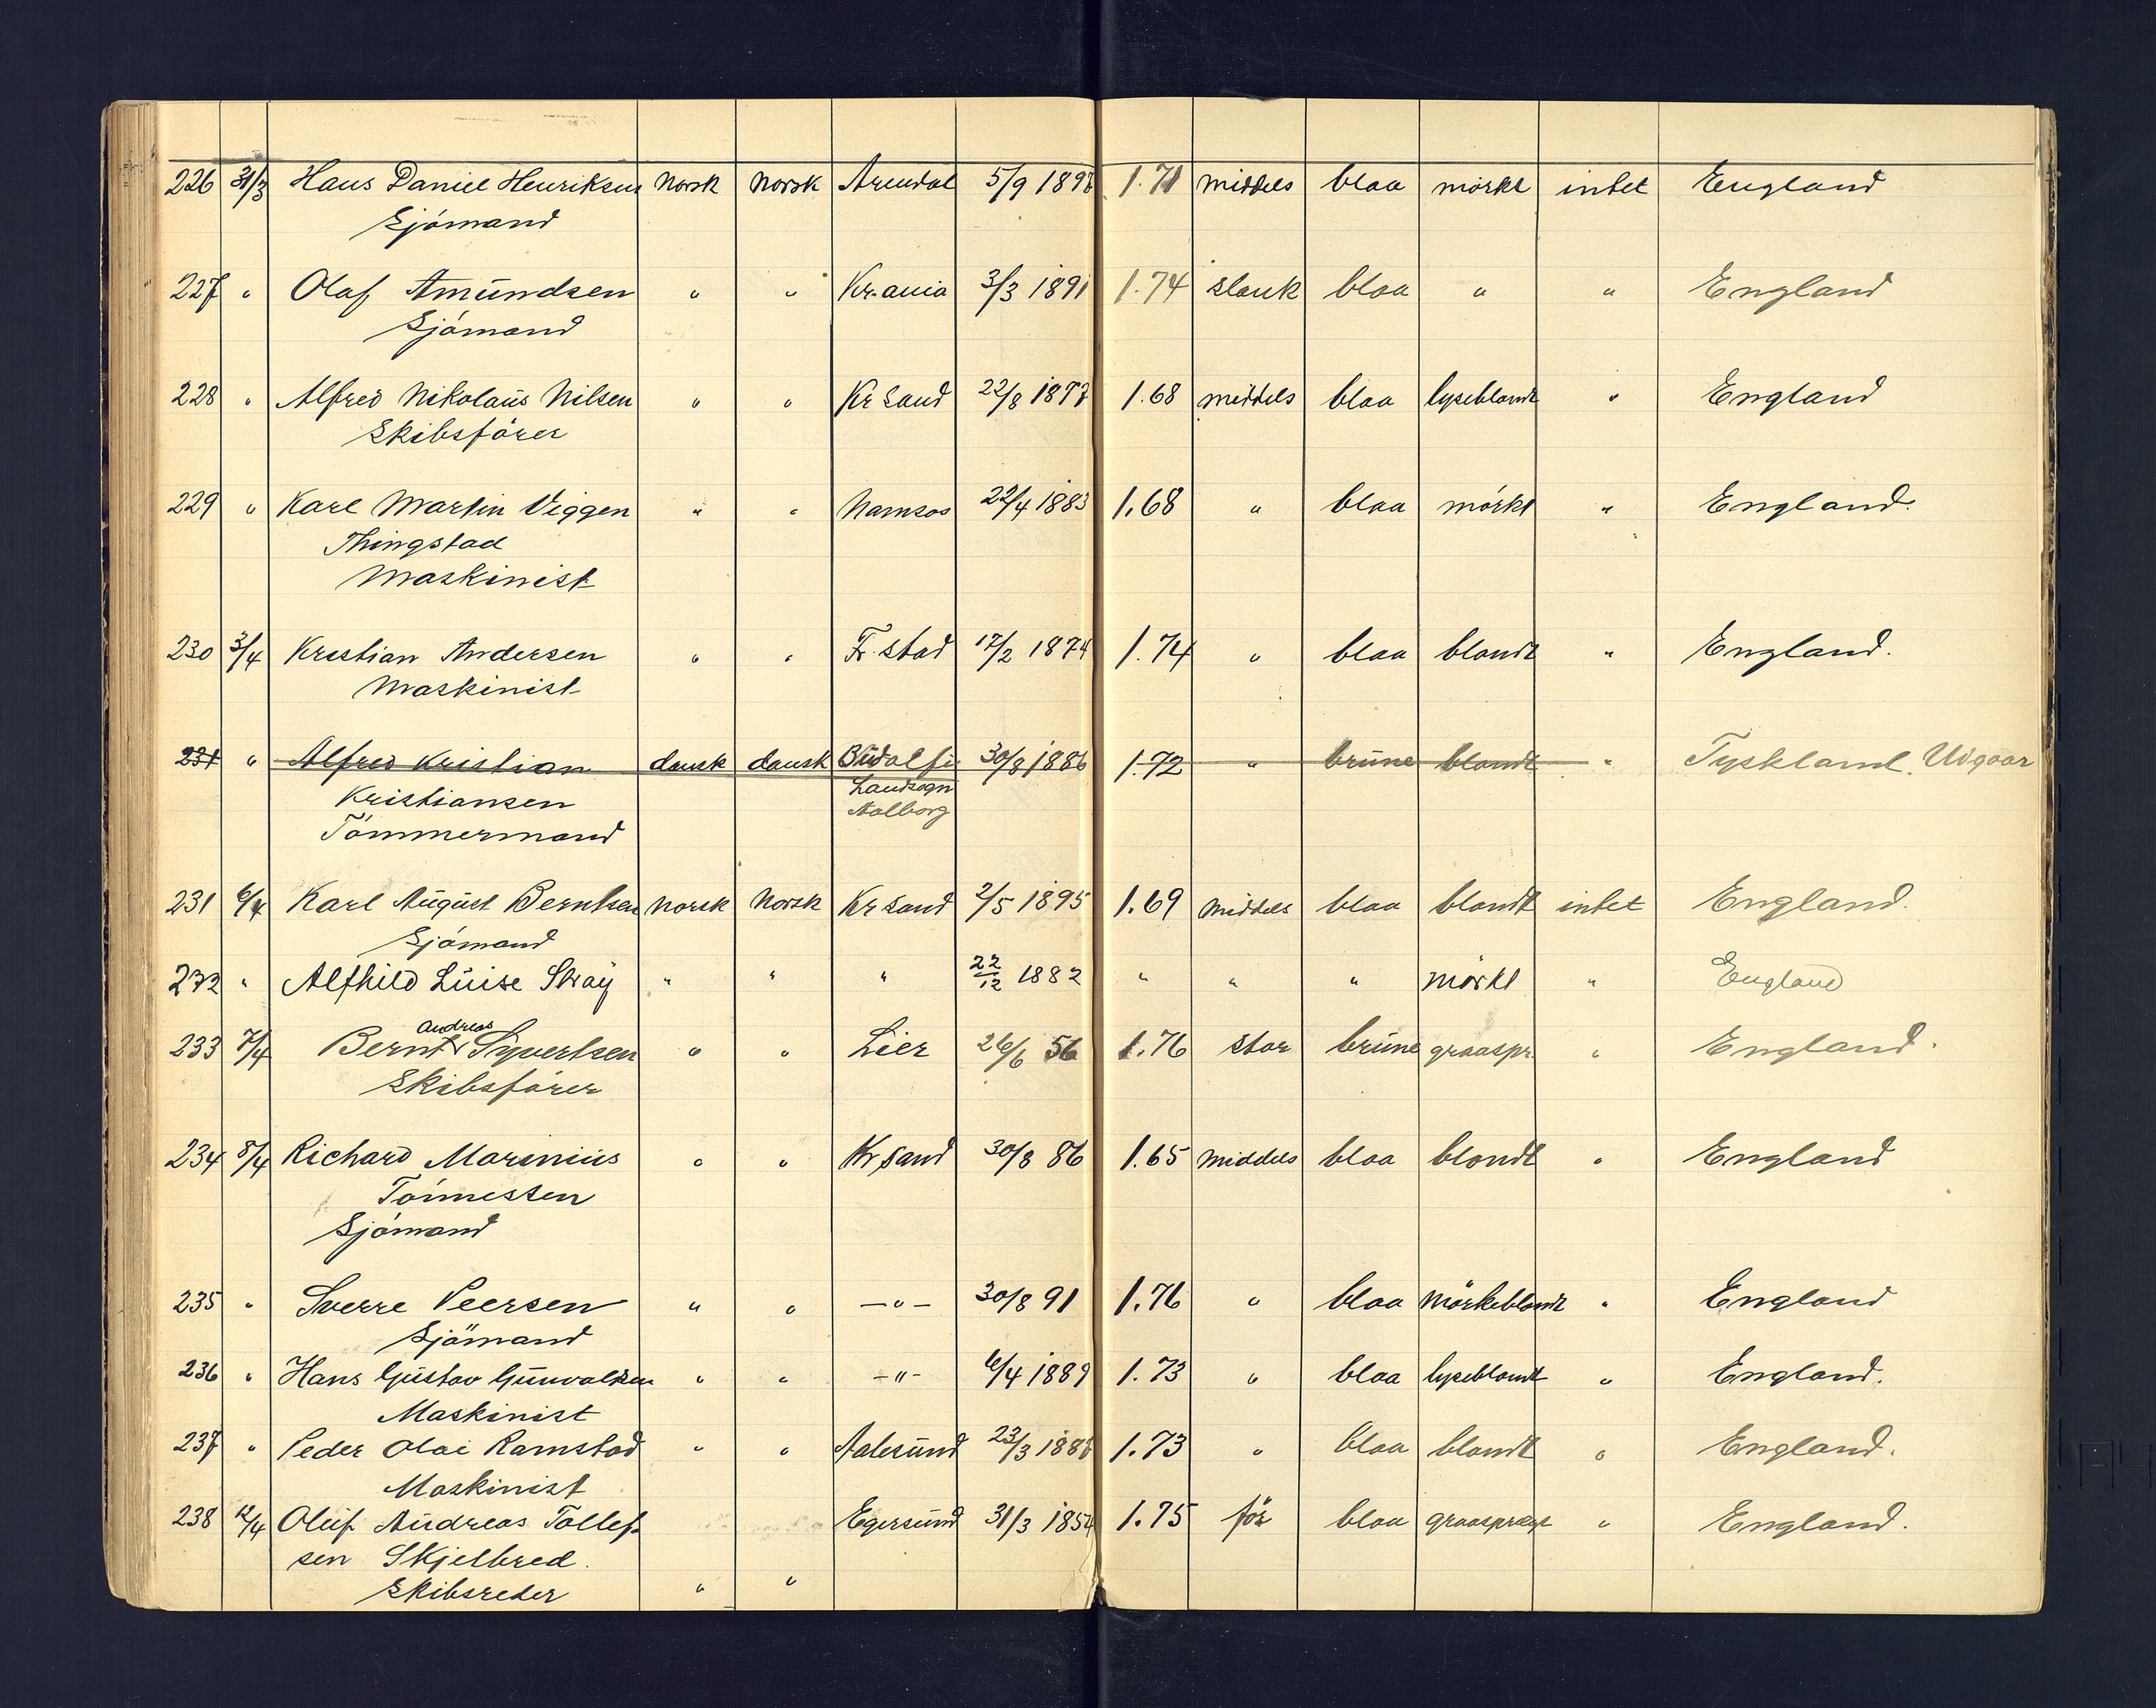 226 31/3 Hans Daniel Henriksen Norsk Norsk Arendal 5/9 1898 1.71 middels blaa mörkt intet England
Sjömand
227 " Olaf Amundsen " " Kr.ania 3/3 1891 1.74 slank blaa " " England
Sjömand
228 " Alfred Nikolaus Nilsen " " Kr sand 22/8 1877 1.68 middels blaa lyseblondt " England
Skibsförer
229 " Karl Martin Viggen " " Namsos 22/4 1883 1.68 " blaa mörkt " England.
Thingstad
Maskinist
230 3/4 Kristian Andersen " " Fr. stad 17/2 1874 1.74 " blaa blondt " England.
Maskinist
231 " Alfred Kristian dansk dansk Budolfi 30/8 1886 1.72 " brune blondt " Tyskland. Udgaar
Kristiansen Landsogn
Aalborg
Tömmermand
231 6/4 Karl August Berntsen Norsk Norsk Kr sand 2/5 1895 1.69 Middels blaa blondt intet England.
Sjömand
232 " Alfhild Luise Stray " " " 22/12 1882 " " " mörkt " England
Andreas
233 7/4 Bernt Syvertsen " " Lier 26/6 56 1.76 stor brune graaspr. " England.
Skibsförer
234 8/4 Richard Marinius " " Kr sand 30/8 86 1.65 Middels blaa blondt " England
Tönnessen
Sjömand
235 " Sverre Peersen " " —"— 30/8 91 1.76 " blaa Mörkeblondt " England
Sjömand
236 " Hans Gustav Gunvaldsen " " —"— 6/4 1889 1.73 " blaa lyseblondt " England.
Maskinist
237 " Peder Olai Ramstad " " Aalesund 23/3 1888 1.73 " blaa blondt " England.
Maskinist
238 12/4 Oluf Andreas Tollef- Egersund 31/3 1854 1.75 för blaa graasprængt " England.
sen Skjelbred.
Skibsreder " "